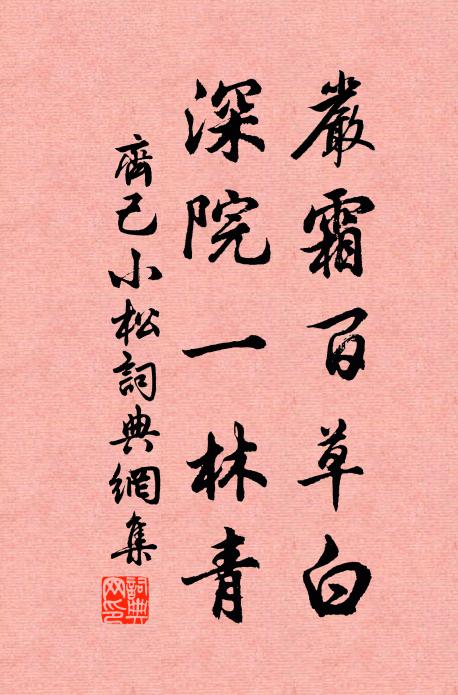 嚴霜百草白
深院一林青
齊己小松詞典網集
詞典网印